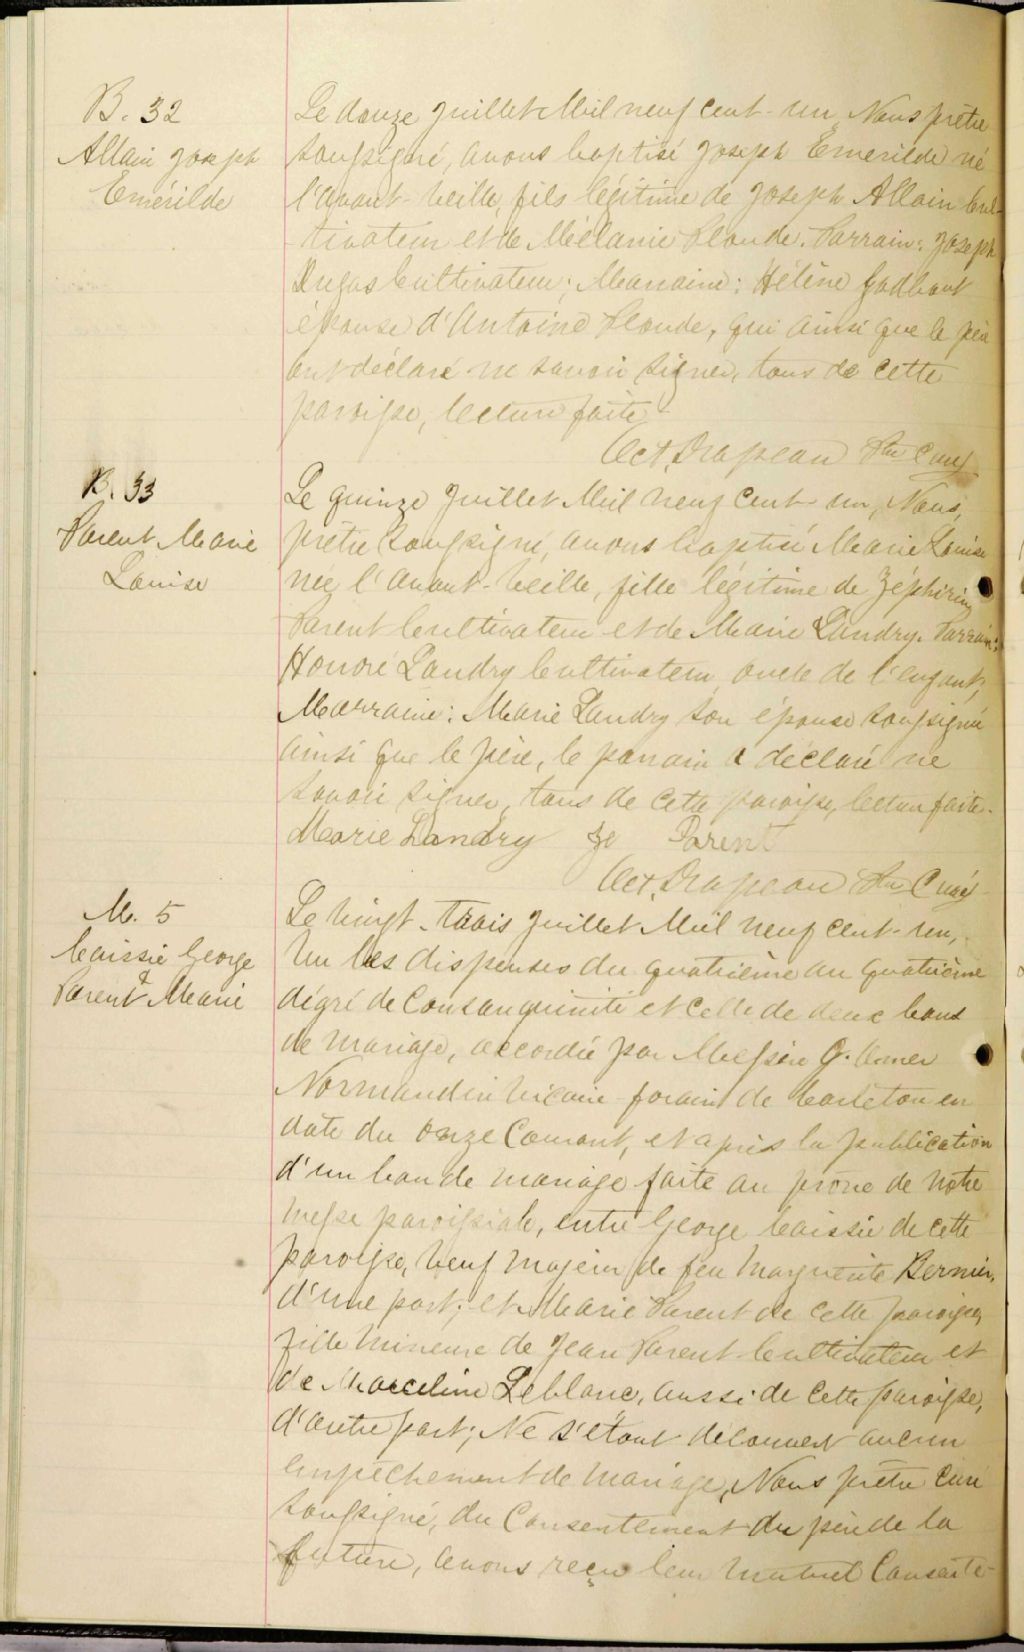 B. 32
Allain Joseph
Emérilde
Le douze Juillet Mil neuf cent-un, Nous prêtre
soussigné, avons baptisé Joseph Emérilde né
l'avant-veille, fils légitime de Joseph Allain Cul-
tivateur et de Mélanie Plourde. Parrain: Joseph
Dugas Cultivateur; Marraine: Hélène Godbout
épouse d'Antoine Plourde, qui ainsi que le père
ont déclaré ne savoir signer, tous de cette
paroisse, lecture faite
Oct. Drapeau Ptre Curé
B. 33
Parent Marie
Louise
Le quinze Juillet Mil neuf cent un, Nous,
prêtre soussigné, avons baptisé Marie Louise
née l'avant-veille, fille légitime de Zéphirin
Parent Cultivateur et de Marie Landry. Parrain:
Honoré Landry Cultivateur, oncle de l'enfant;
Marraine: Marie Landry son épouse soussignée
ainsi que le père, le parrain a déclaré ne
savoir signer, tous de cette paroisse, lecture faite.
Marie Landry Parent
Oct. Drapeau Ptre Curé
M. 5
Caissie George
&
Parent Marie
Le vingt-trois Juillet Mil neuf cent-un,
Vu les dispenses du quatrième au quatrième
dégré de Consanguinité et celle de deux bans
de mariage, accordée par Messire J. Omer
Normandin Vicaire forain de Carleton en
date du onze Courant, et après la publication
d'un ban de mariage faite au prône de notre
messe paroissiale, entre George Caissie de cette
paroisse, veuf majeur de feu Marguerite Bernier,
d'une part; et Marie Parent de cette paroisse,
fille mineure de Jean Parent Cultivateur et
de Marceline Leblanc, aussi de cette paroisse,
d'autre part; Ne s'étant découvert aucun
empêchement de mariage, Nous prêtre curé
soussigné, du Consentement du père de la
future, avons reçu leur mutuel Consente-